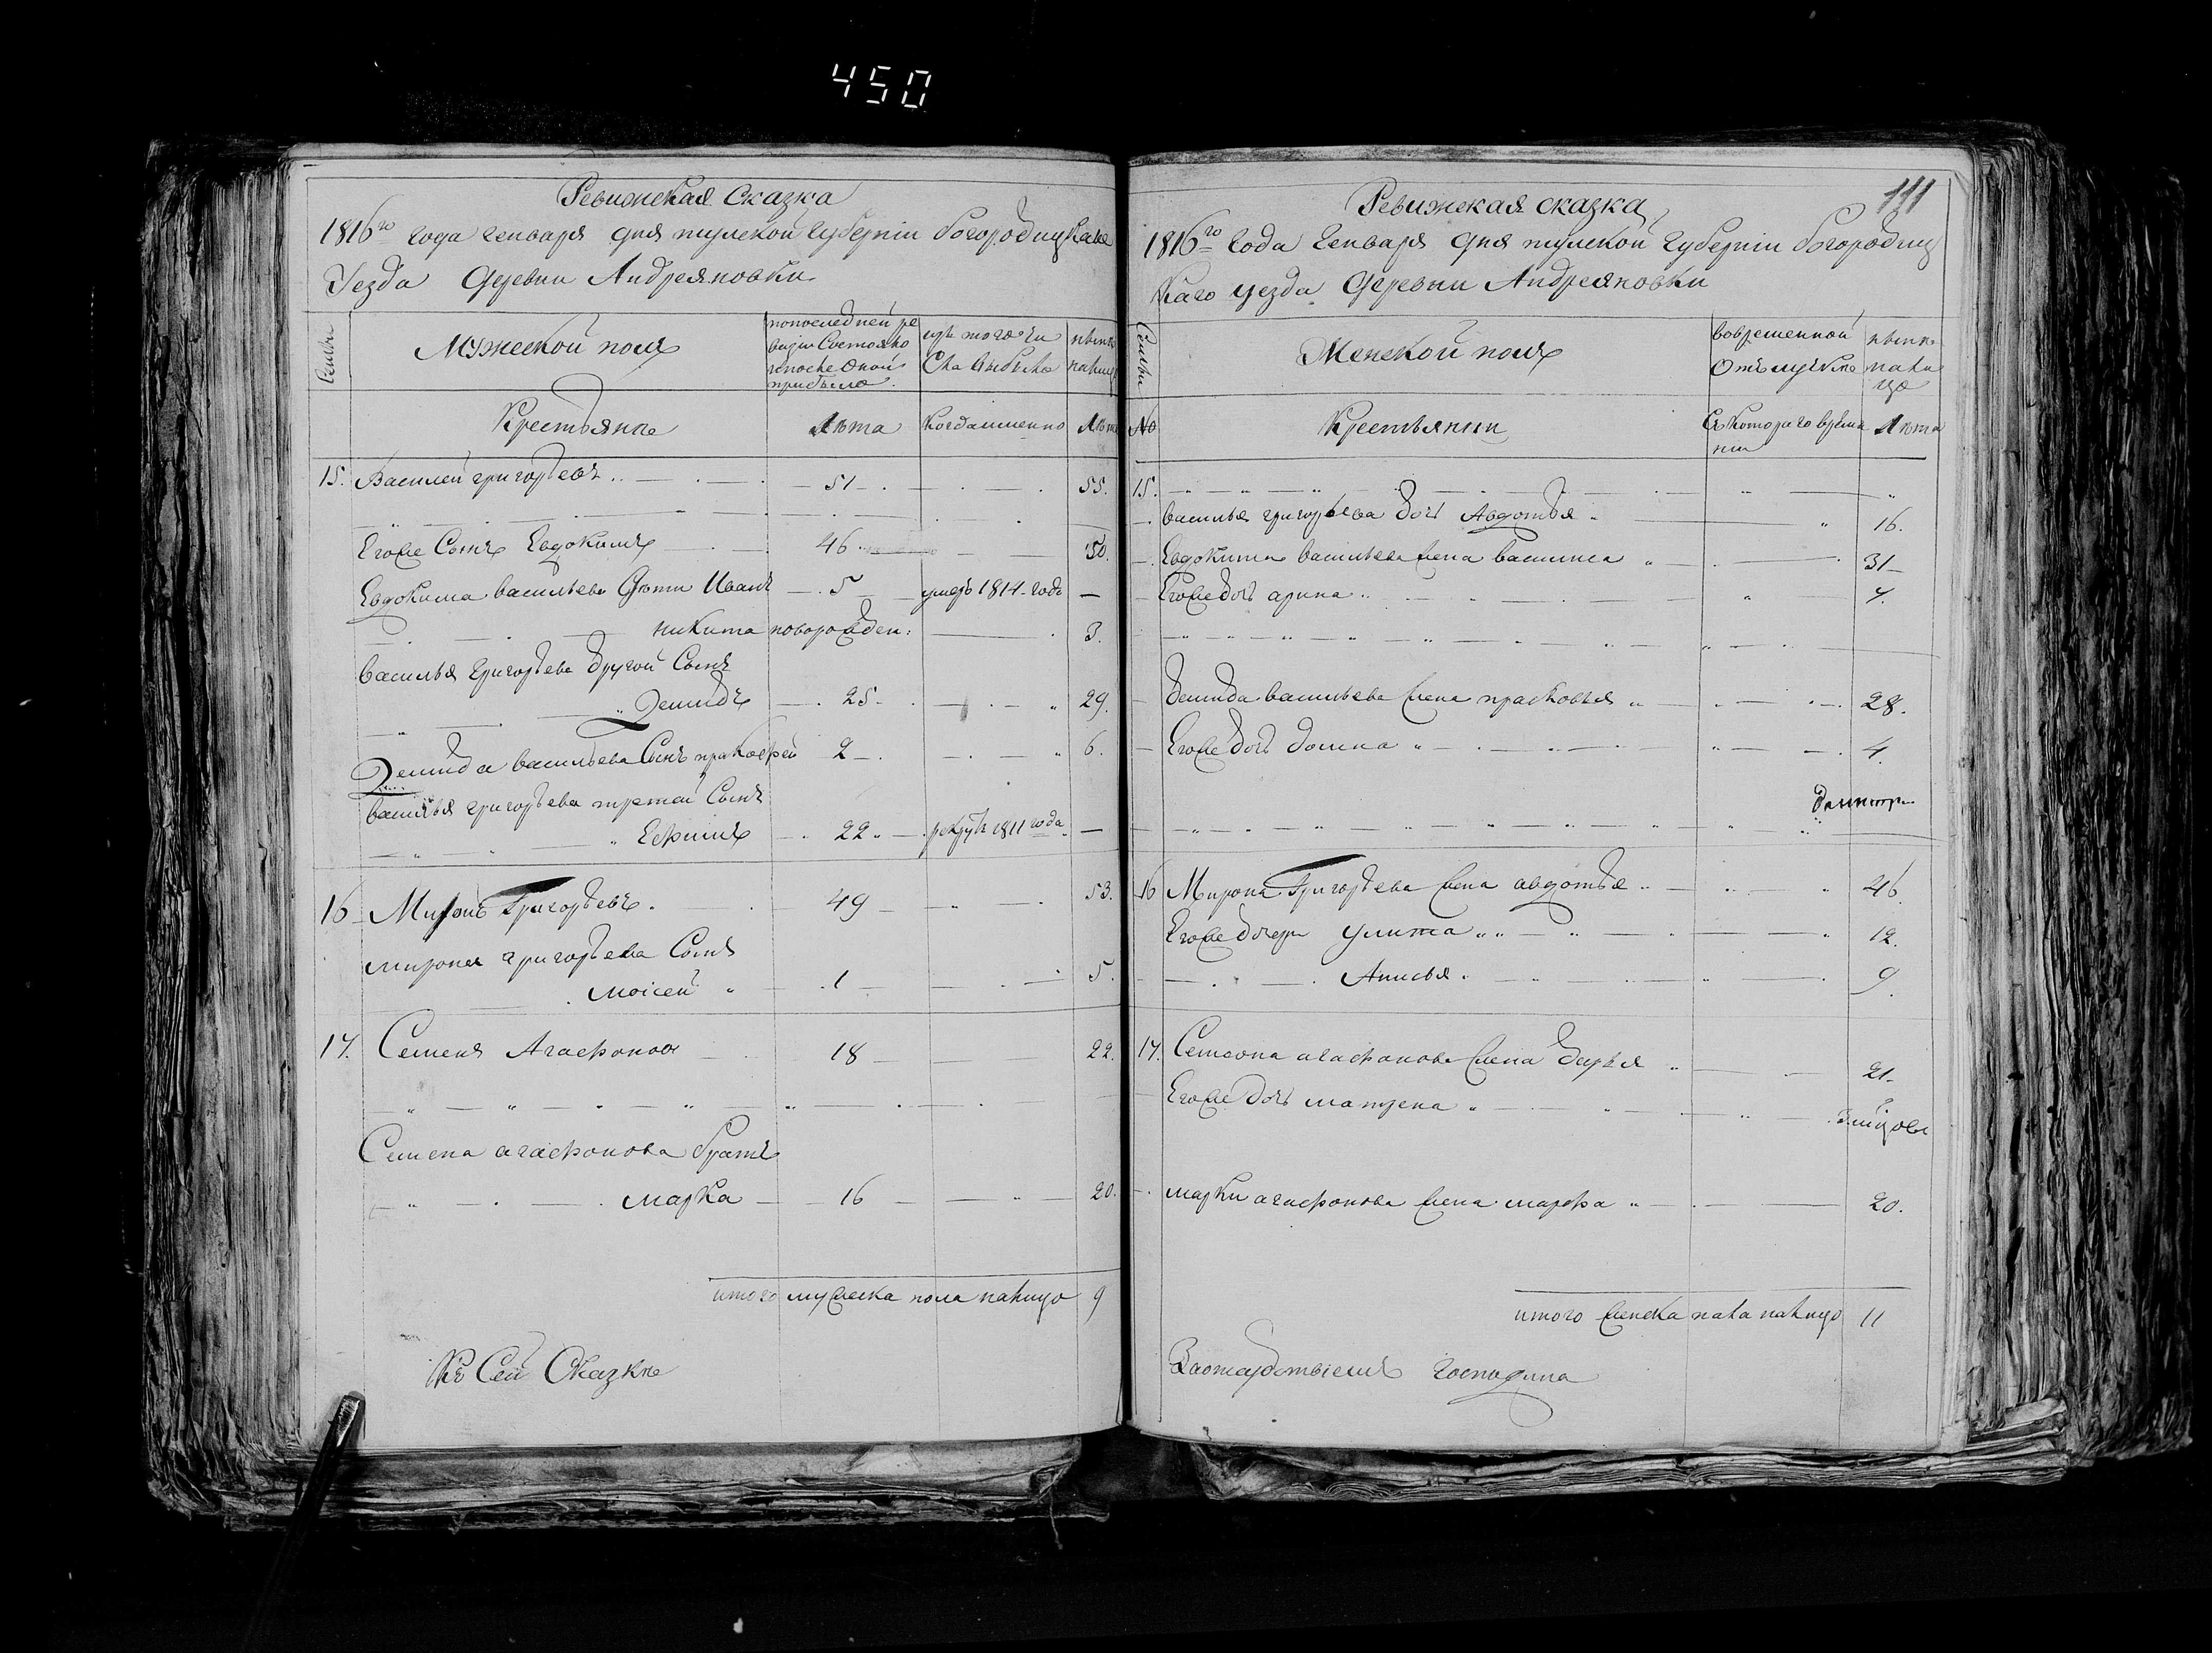 450
Ревижская Сказка
1816го года Генваря дня тулской Губернiи богородицкаго
Уезда Деревни Андреяновки
Семьи
Мужеской полъ
попоследней ре
визiи Состояло
ипосле Оной
прибыло
изъ того чи
сла выбыло
ныне
налицо
Крестьяне
Лѣта
Когда именно
Лѣта
15. Василей григорьевъ 51 55.
Егоже Сынъ Евдокимъ 46 50.
Евдокима васильева дѣти Иванъ 5 умеръ 1814 года
никита новорожден: 3.
Василья григорьева другой Сынъ
Демидъ 25 29.
Демида васильева Сынъ пракофей 2 6.
василья григорьева третей Сынъ
Ефимъ 22 рекрутъ 1811 года
16 Миронъ Григорьевъ 49 53.
мирона григорьева Сынъ
моiсей 1 5.
17. Семенъ Агафоновъ 18 22.
Семена агафонова братъ
марка 16 20.
итого мужеска пола налицо 9
Къ Сей Сказке
111
Ревижская сказка
1816го Года Генваря дня тулской губернiи богородиц
каго уезда деревни Андреяновки
Семьи
Женской полъ
вовременной
Отълучке
ныне
нали
цо
№
Крестьянки
Съ Котораго време
ни
Лѣта
15.
василья григорьева дочь Авдотья 16.
Евдокима васильева жена василиса 31
Егоже дочь арина 7.
демида васильева жена прасковья 28.
Егоже дочь домна 4.
16 Мирона Григорьева жена авдотья 46.
Егоже дочери улита 12.
Анисья 9.
17. Семиона агафонова жена дарья 21
Егоже дочь матрена 3 мѣсяцовъ
марки агафонова жена марфа 20.
итого женска пола налицо 11
господина